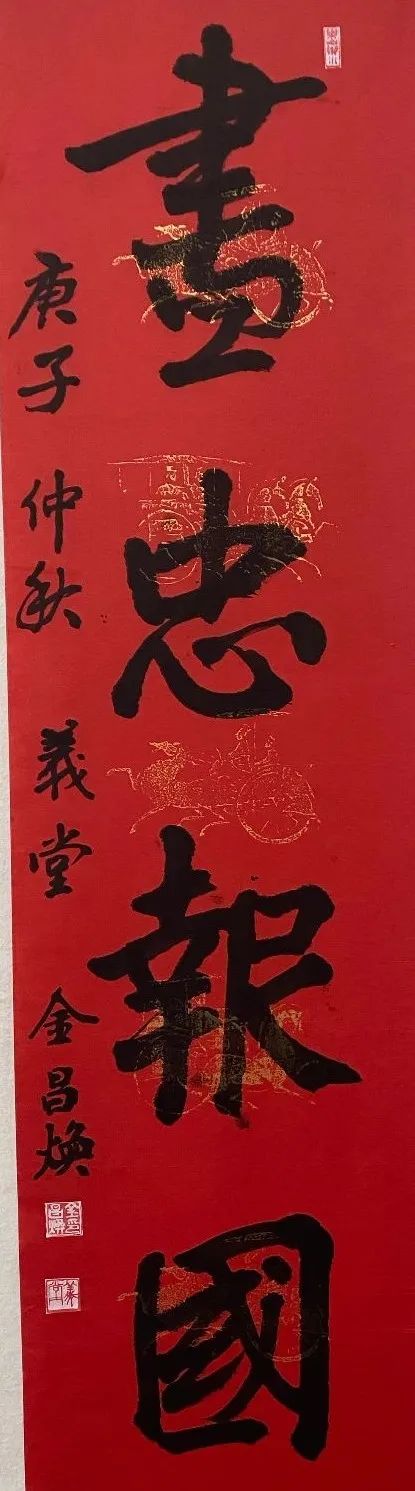 盡忠報國
庚子 仲秋 義堂 金昌煥